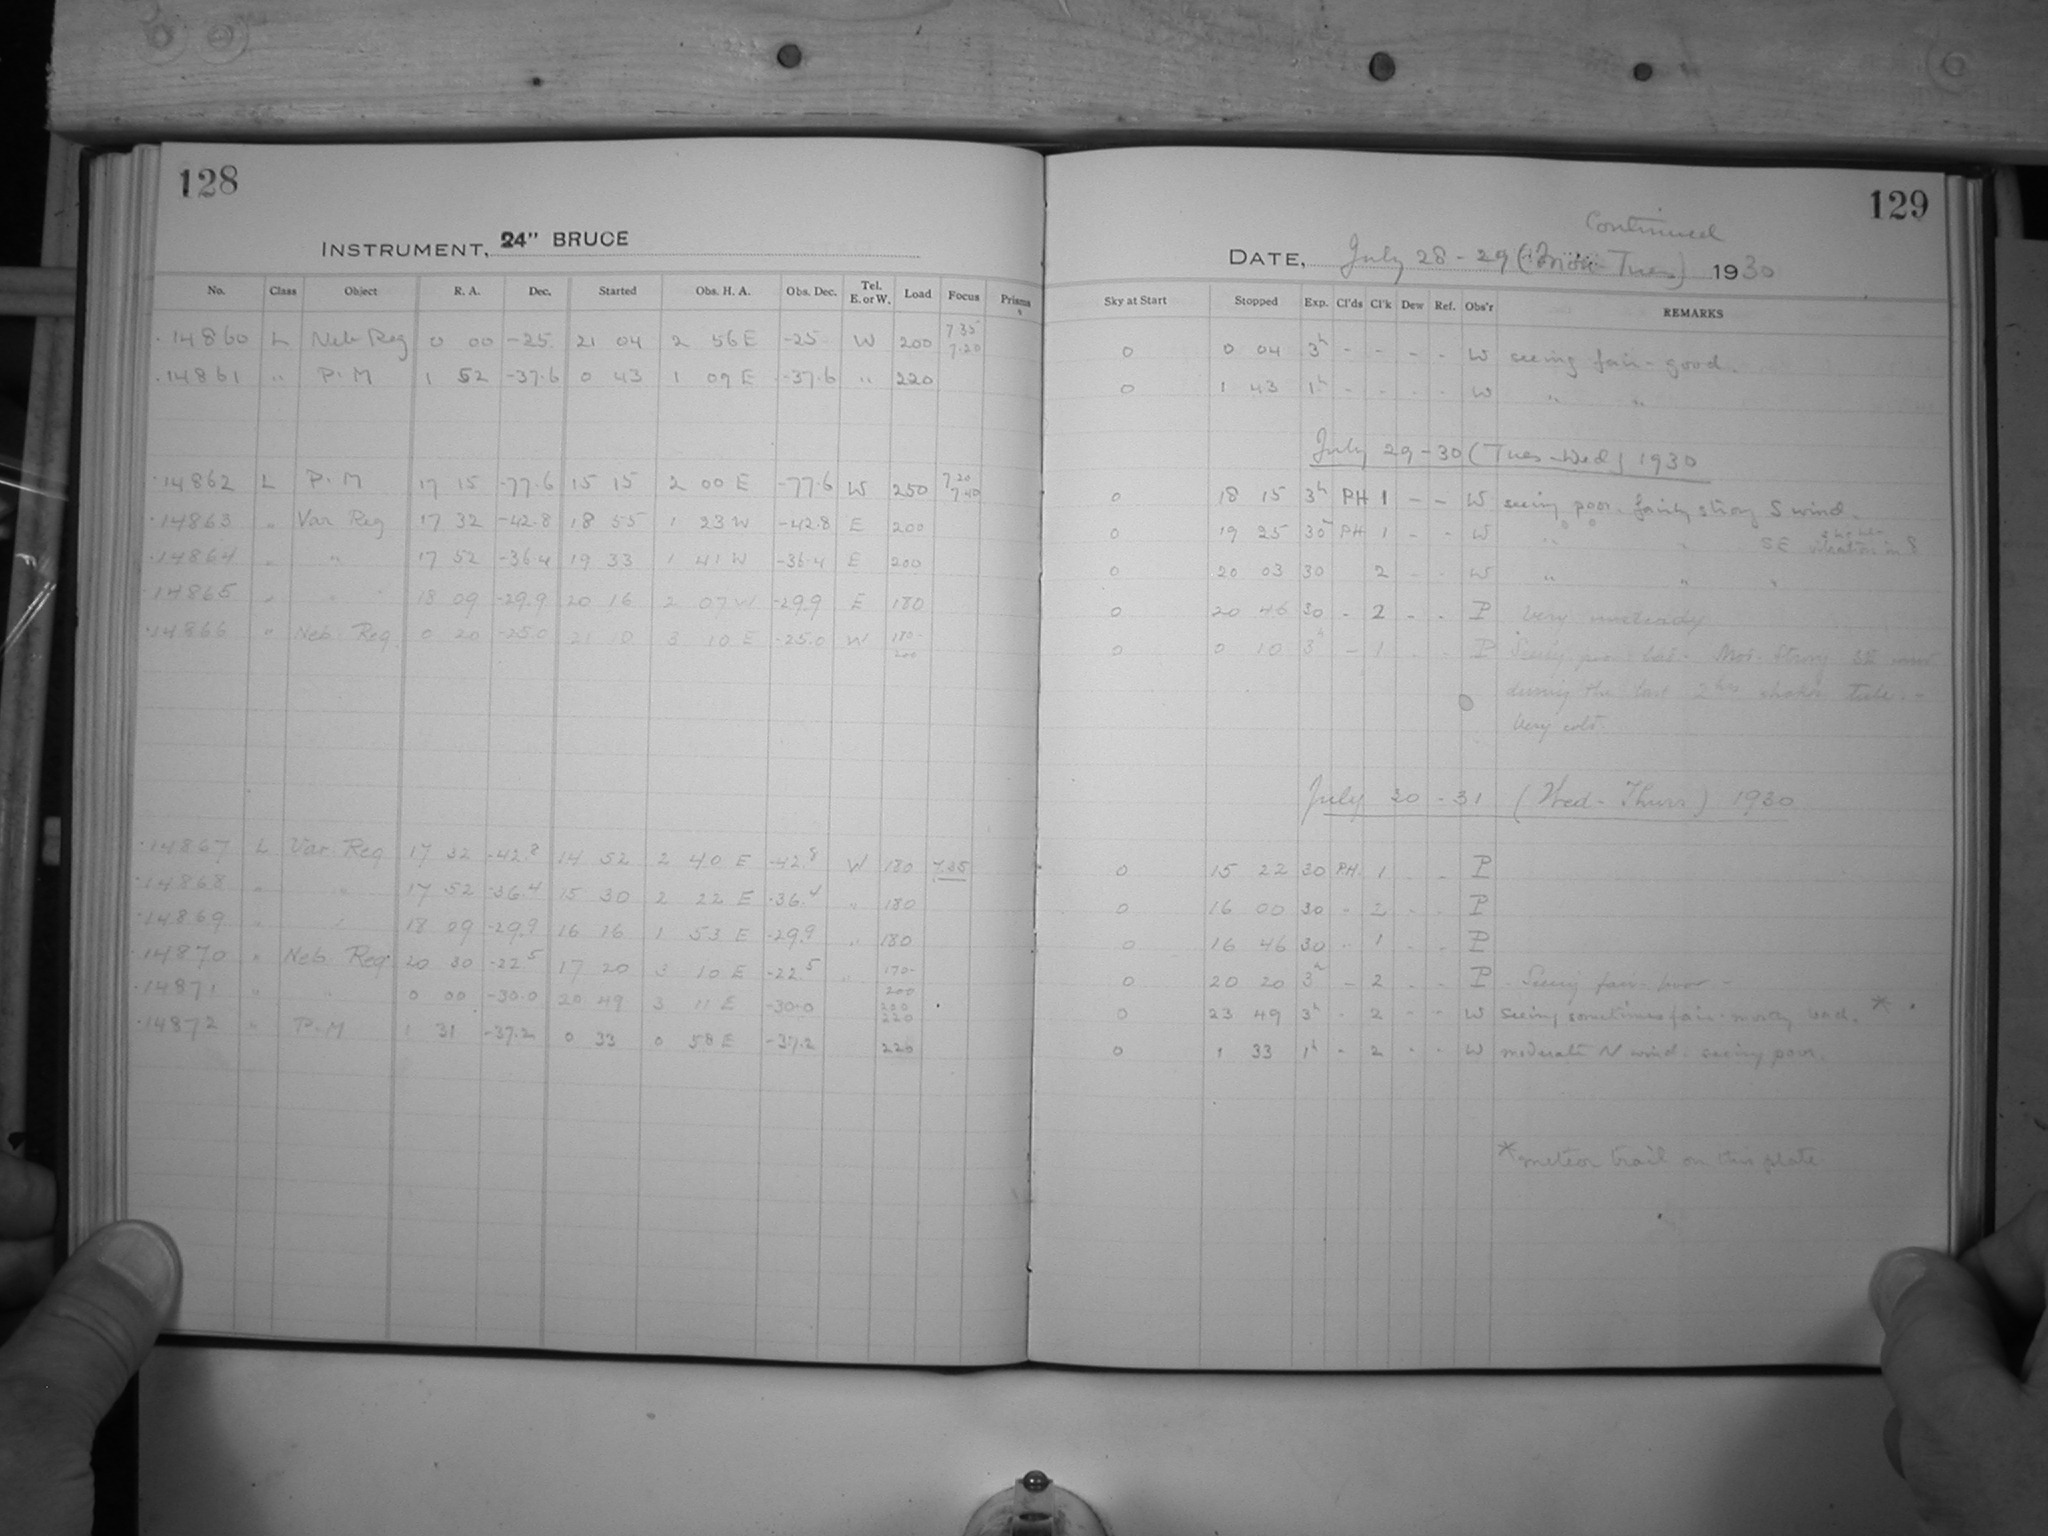 128
INSTRUMENT, 24" BRUCE
No. Class Object R. A. Dec. Started Obs. H. A. Obs. Dec. Tel. E. or W. Load Focus Prisms
14860 L Neb Reg 0 00 -25 21 04 2 56 E -25 W 200 7.35 7.20
14861 " P.M 1 52 -37.6 0 43 1 09 E -37.6 " 220
14862 L P.M 17 15 -77.6 15 15 2 00 E -77.6 W 250 7.20 7.40
14863 " Var Reg 17 32 -42.8 18 55 1 23 W -42.8 E 200
14864 " " 17 52 -36.4 19 33 1 41 W -36.4 E 200
14865 " " 18 09 -29.9 20 16 2 07 W -29.9 E 180
14866 " Neb. Reg. 0 20 -25.0 21 10 3 10 E -25.0 W 180- 200
14867 L Var. Reg 17 32 -42.8 14 52 2 40 E -42.8 W 180 7.35
14868 " " 17 52 -36.4 15 30 2 22 E -36.4 " 180
14869 " " 18 09 -29.9 16 16 1 53 E -29.9 " 180
14870 " Neb Reg. 20 30 -22.5 17 20 3 10 E -22.5 " 170- 200
14871 " " 0 00 -30.0 20 49 3 11 E -30.0 200 220
14872 " P.M 1 31 -37.2 0 33 0 58 E -37.2 220
129
Continued
DATE, July 28 - 29 (Mon - Tues) 1930
Sky at Start Stopped Exp. Cl'ds Cl'k Dew Ref. Obs'r REMARKS
0 0 04 3h - - - - W seeing fair - good.
0 1 43 1h - - - - W " "
July 29-30 (Tues-Wed) 1930
0 18 15 3h PH 1 - - W seeing poor. fairly strong S wind.
0 19 25 30m PH 1 - - W " " SE vibration in 8
0 20 03 30 2 - - W " " "
0 20 46 30 - 2 - - P Very unsteady
0 0 10 3h - 1 - - P Seeing poor - bad. Mod. Strong SE wind
during the last 2 hrs shakes tube. -
Very cold.
July 30 - 31 (Wed - Thurs) 1930
0 15 22 30 PH. 1 - - P
0 16 00 30 - 2 - - P
0 16 46 30 - 1 - - P
0 20 20 3h - 2 - - P - Seeing fair - poor -
0 23 49 3h - 2 - - W seeing sometimes fair - mostly bad. *
0 1 33 1h - 2 - - W moderate N wind. seeing poor.
* meteor trail on this plate